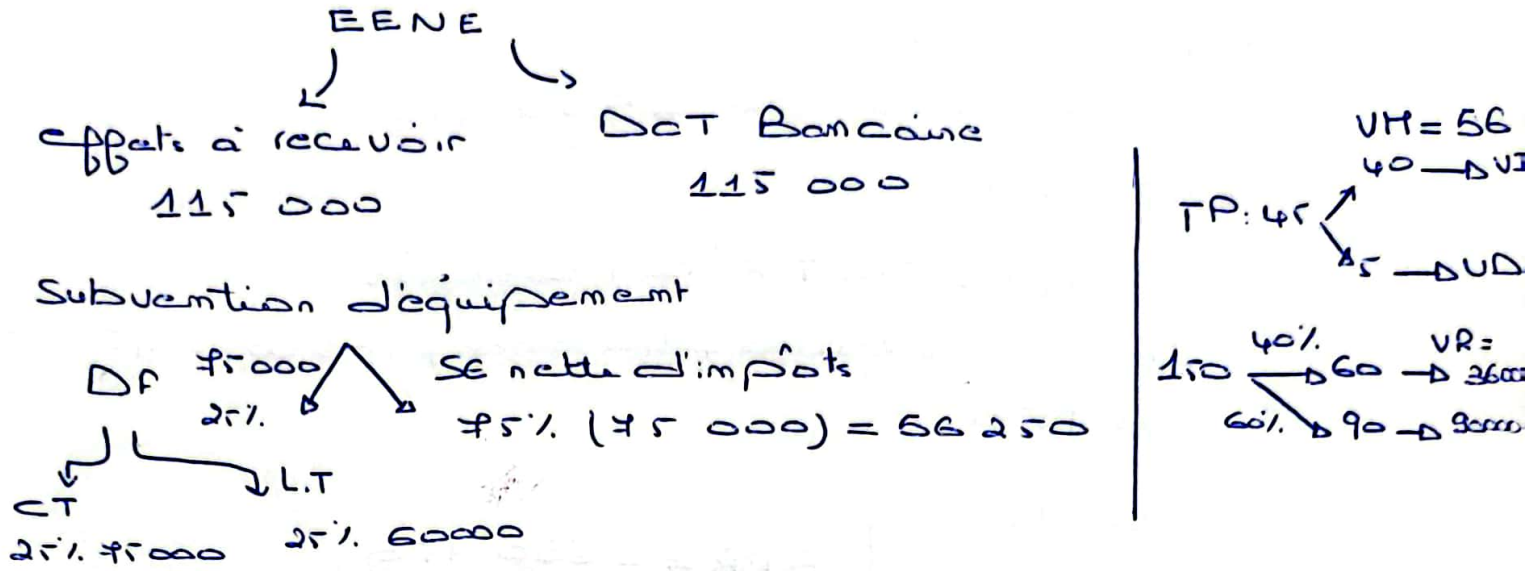 EENE
effets à recevoir
115 000
DCT Bancaire
115 000
Subvention d'équipement
DF 75000
25%
SE nette d'impôts
75% (75 000) = 56 250
CT
25% 75000
L.T
25% 60000
VM = 56
TP: 45
40 → VI
5 → VD
150 40% 60 → VR = 36000
60% 90 → 90000